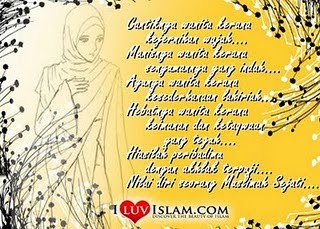 Cantiknya wanita kerana
kejernihan wajah....
Manisnya wanita kerana
senyumannya yang indah....
Ayunya wanita kerana
kesederhanaan lahiriah....
Hebatnya wanita kerana
keimanan dan ketaqwaan
yang teguh....
Hiasilah peribadimu
dengan akhlak terpuji....
Nilai diri seorang Muslimah Sejati....
I LUV ISLAM.COM
DISCOVER THE BEAUTY OF ISLAM